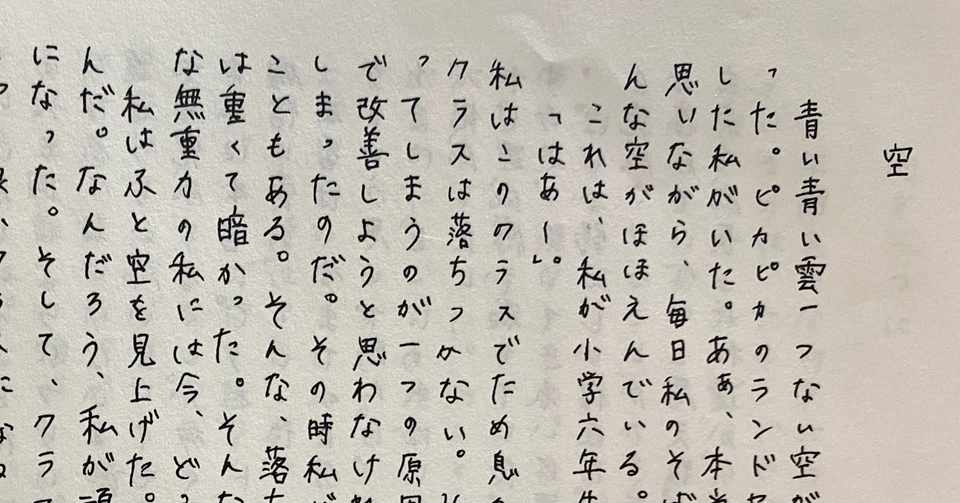 空
青い青い雲一つない空が
った。ピカピカのランドセ
した私がいた。あぁ、本当
思いながら、毎日私のそば
んな空がほほえんでいる。
これは、私が小学六年生
「はあー。」
私はこのクラスでため息を
クラスは落ちつかない。
ってしまうのが一つの原因
で改善しようと思わなけれ
しまったのだ。その時私が
こともある。そんな、落ち
は重くて暗かった。そんな
な無重力の私には今、ど
私はふと空を見上げた。
んだ。なんだろう、私が
になった。そして、クラ